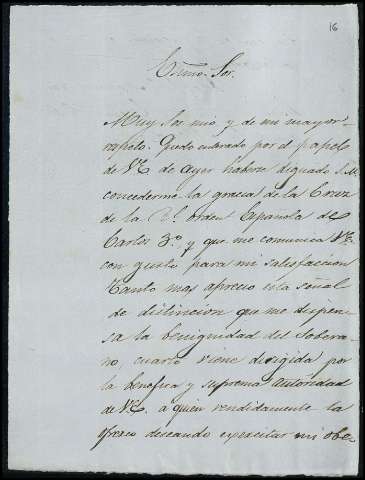 16
Exmo. Sor.
Muy Sor mio y de mi mayor
respeto. Quedo enterado por el papel
de VE. de ayer haberse dignado S.M.
concederme la gracia de la Cruz
de la Rl. orden Española de
Carlos 3.º, y que me comunica VE.
con gusto para mi satisfaccion
Tanto mas aprecio esta señal
de distincion que me dispen-
sa la benignidad del Sobera-
no, cuanto viene dirigida por
la benefica y suprema autoridad
de VE. a quien rendidamente la
ofrezco deseando egercitar mi obe-